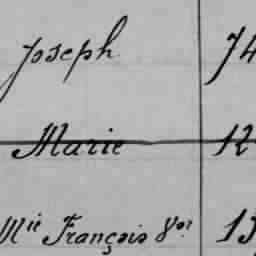 Joseph 74
Marie 12
Mie François Vor 13